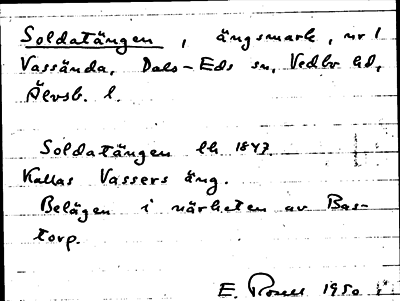 Soldatängen , ängsmark, nr 1
Vassända, Dals-Eds sn, Vedbo hd,
Älvsb. l.
Soldatängen lh 1847
Kallas Vassers äng.
Belägen i närheten av Bas-
torp.
E. 1950